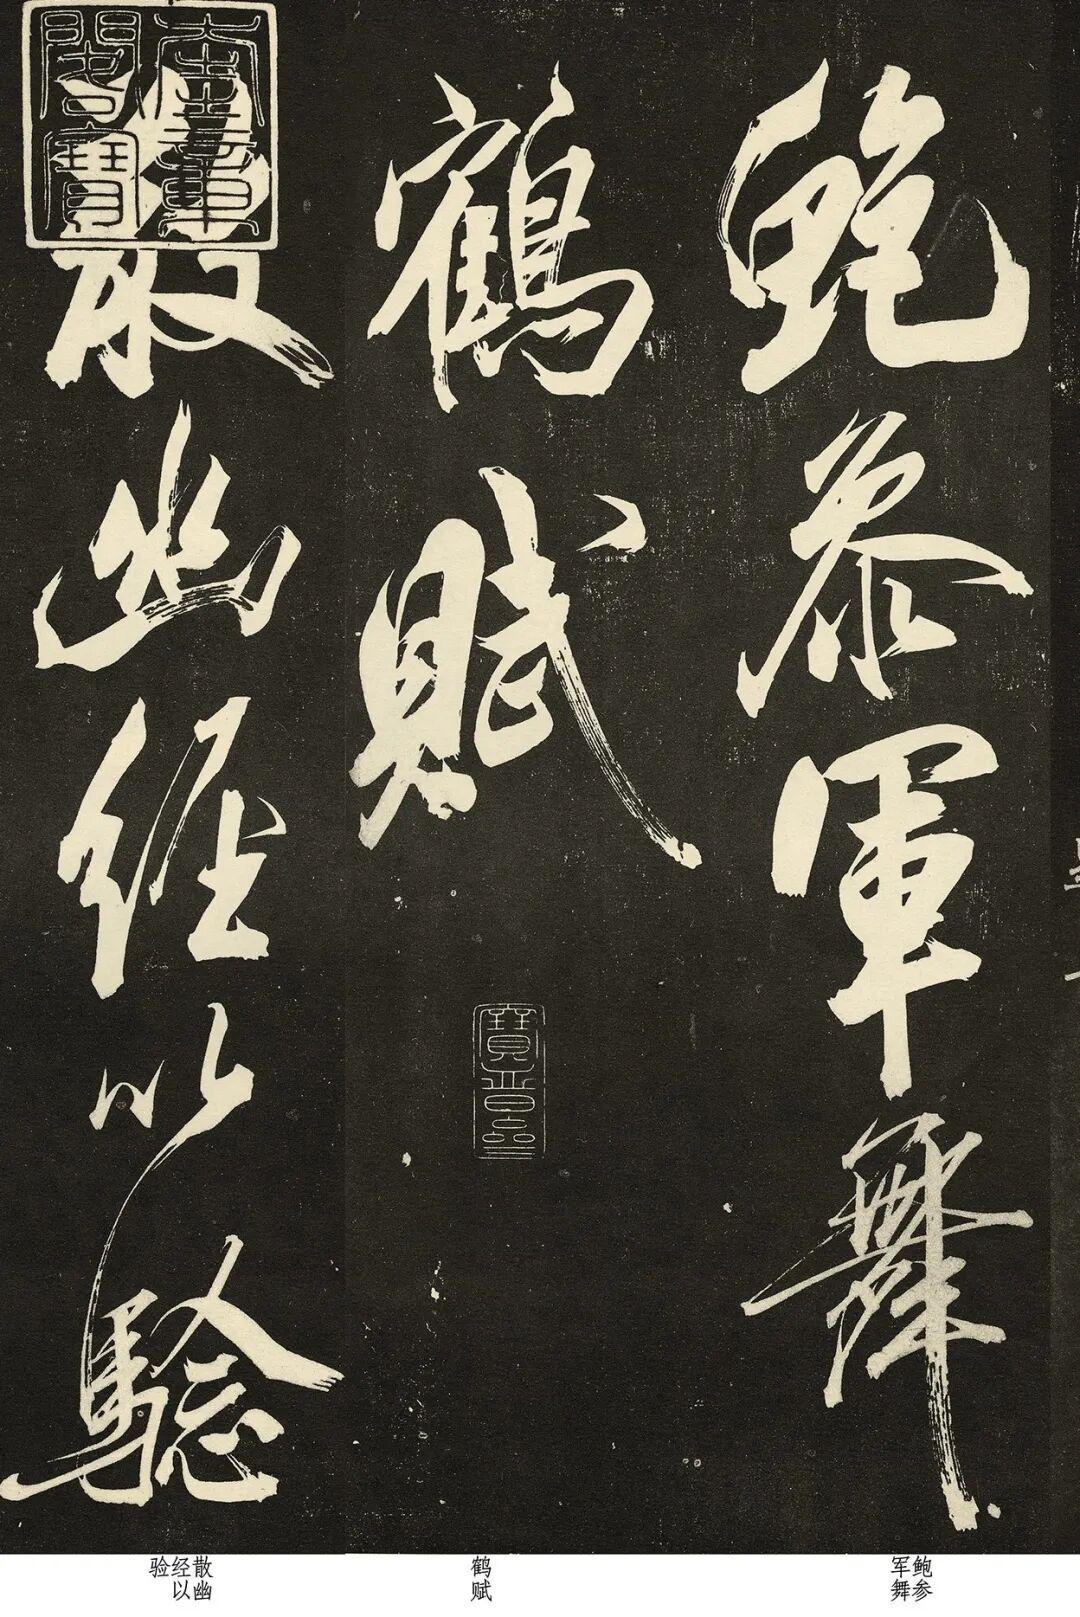 鮑參軍舞
鶴賦
寶晉齋
奎章
閣寶
散幽經以驗
鲍参
军舞
鹤赋
散幽
经以
验